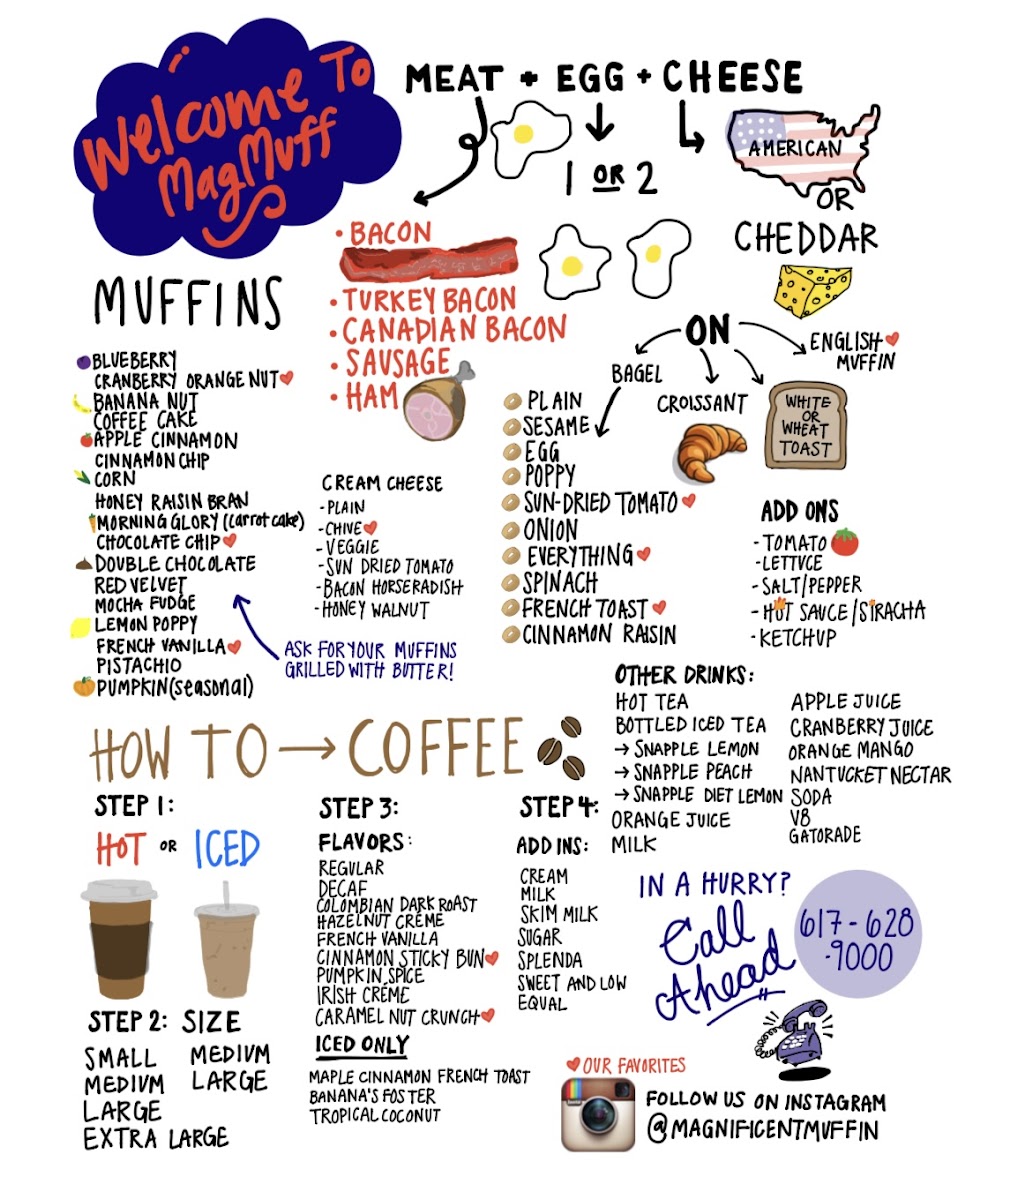 Welcome To
MagMuff
MEAT + EGG + CHEESE
1 OR 2
AMERICAN
OR
CHEDDAR
• BACON
• TURKEY BACON
• CANADIAN BACON
• SAUSAGE
• HAM
MUFFINS
BLUEBERRY
CRANBERRY ORANGE NUT
BANANA NUT
COFFEE CAKE
APPLE CINNAMON
CINNAMON CHIP
CORN
HONEY RAISIN BRAN
MORNING GLORY (carrot cake)
CHOCOLATE CHIP
DOUBLE CHOCOLATE
RED VELVET
MOCHA FUDGE
LEMON POPPY
FRENCH VANILLA
PISTACHIO
PUMPKIN (seasonal)
ASK FOR YOUR MUFFINS
GRILLED WITH BUTTER!
CREAM CHEESE
- PLAIN
- CHIVE
- VEGGIE
- SUN DRIED TOMATO
- BACON HORSERADISH
- HONEY WALNUT
ON
BAGEL
CROISSANT
WHITE
OR
WHEAT
TOAST
ENGLISH
MUFFIN
PLAIN
SESAME
EGG
POPPY
SUN-DRIED TOMATO
ONION
EVERYTHING
SPINACH
FRENCH TOAST
CINNAMON RAISIN
ADD ONS
- TOMATO
- LETTUCE
- SALT/PEPPER
- HOT SAUCE/SIRACHA
- KETCHUP
OTHER DRINKS:
HOT TEA
BOTTLED ICED TEA
→ SNAPPLE LEMON
→ SNAPPLE PEACH
→ SNAPPLE DIET LEMON
ORANGE JUICE
MILK
APPLE JUICE
CRANBERRY JUICE
ORANGE MANGO
NANTUCKET NECTAR
SODA
V8
GATORADE
HOW TO → COFFEE
STEP 1:
HOT OR ICED
STEP 2: SIZE
SMALL
MEDIUM
LARGE
EXTRA LARGE
MEDIUM
LARGE
STEP 3:
FLAVORS:
REGULAR
DECAF
COLOMBIAN DARK ROAST
HAZELNUT CRÈME
FRENCH VANILLA
CINNAMON STICKY BUN
PUMPKIN SPICE
IRISH CRÈME
CARAMEL NUT CRUNCH
ICED ONLY
MAPLE CINNAMON FRENCH TOAST
BANANA'S FOSTER
TROPICAL COCONUT
STEP 4:
ADD INS:
CREAM
MILK
SKIM MILK
SUGAR
SPLENDA
SWEET AND LOW
EQUAL
IN A HURRY?
Call
Ahead
617-628
-9000
OUR FAVORITES
FOLLOW US ON INSTAGRAM
@MAGNIFICENTMUFFIN